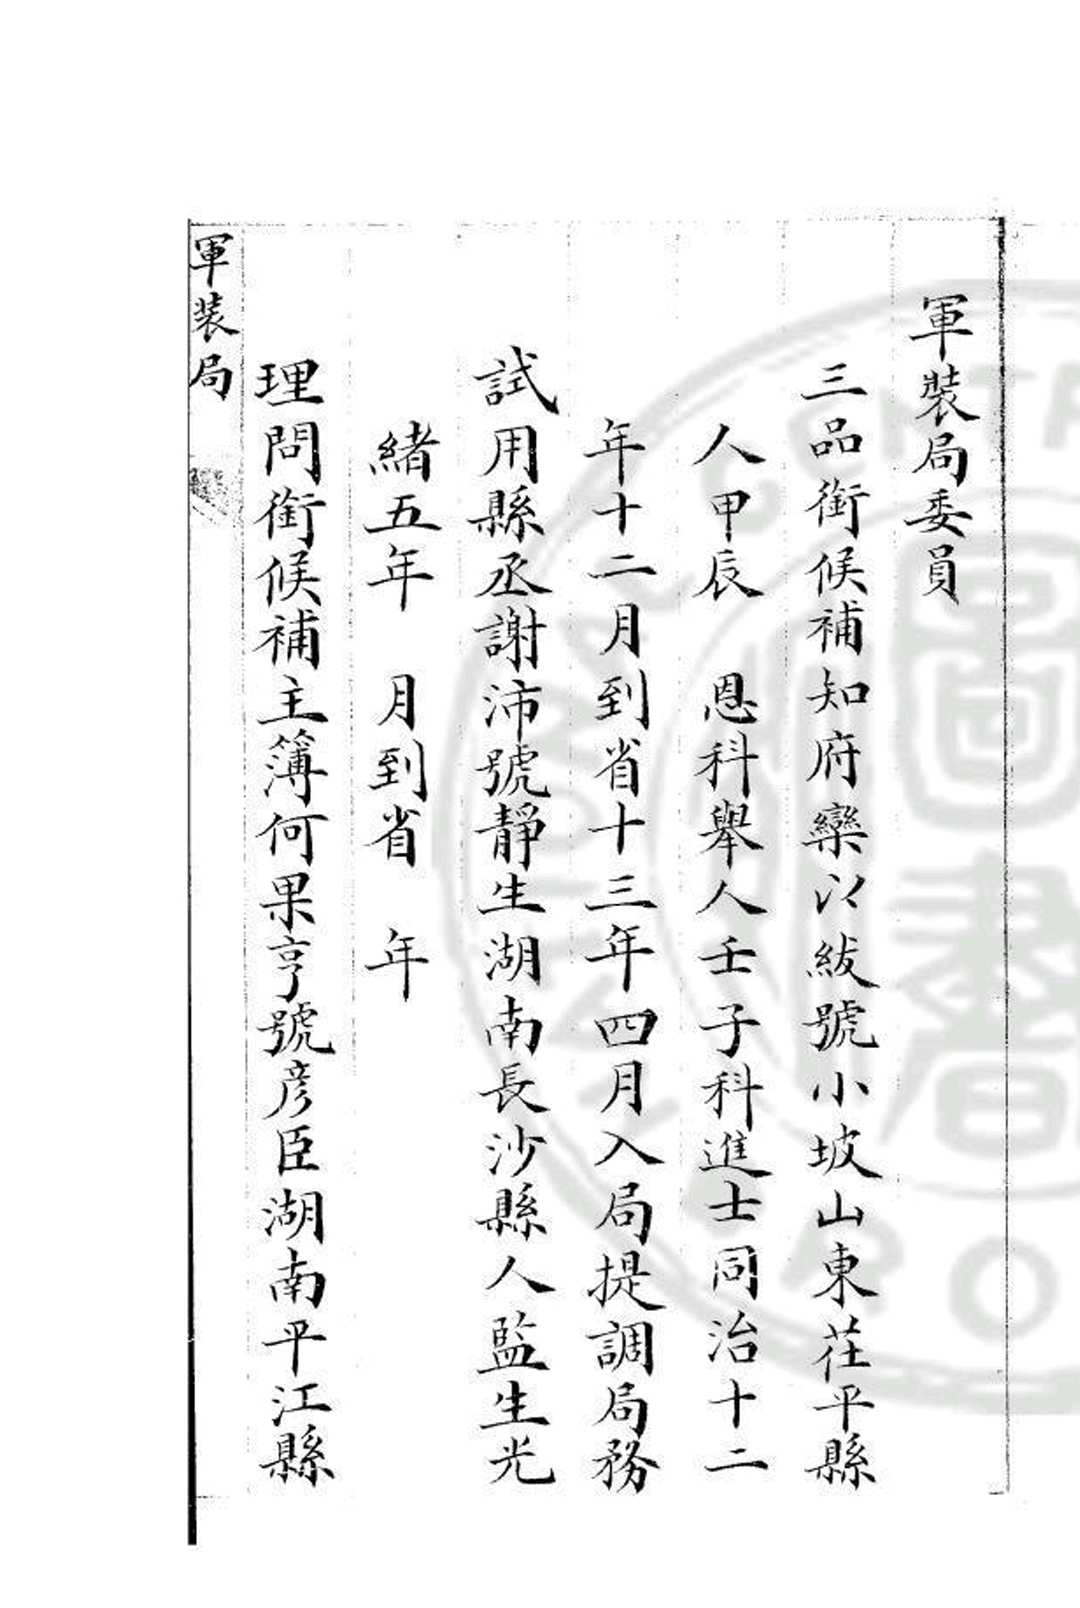 軍裝局委員
三品銜候補知府欒以紱號小坡山東茌平縣
人甲辰　恩科舉人壬子科進士同治十二
年十二月到省十三年四月入局提調局務
試用縣丞謝沛號靜生湖南長沙縣人監生光
緒五年　月到省　年
理問銜候補主簿何果亨號彦臣湖南平江縣
軍装局